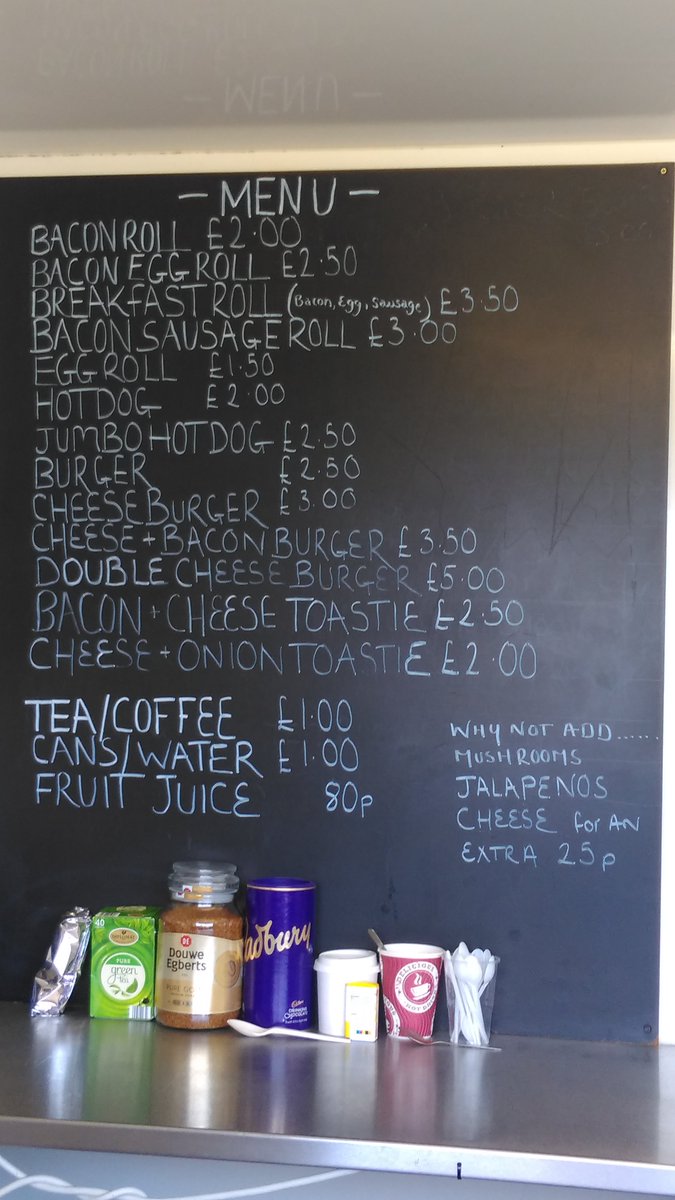 - MENU -
BACON ROLL £2.00
BACON EGG ROLL £2.50
BREAKFAST ROLL (Bacon, Egg, Sausage) £3.50
BACON SAUSAGE ROLL £3.00
EGG ROLL £1.50
HOTDOG £2.00
JUMBO HOTDOG £2.50
BURGER £2.50
CHEESE BURGER £3.00
CHEESE + BACON BURGER £3.50
DOUBLE CHEESE BURGER £5.00
BACON + CHEESE TOASTIE £2.50
CHEESE + ONION TOASTIE £2.00
TEA/COFFEE £1.00
CANS/WATER £1.00
FRUIT JUICE 80p
WHY NOT ADD......
MUSHROOMS
JALAPENOS
CHEESE for AN
EXTRA 25p
40
PURE
green
tea
DE
Douwe
Egberts
PURE GOLD
Cadbury
DRINKING
CHOCOLATE
DELICIOUS